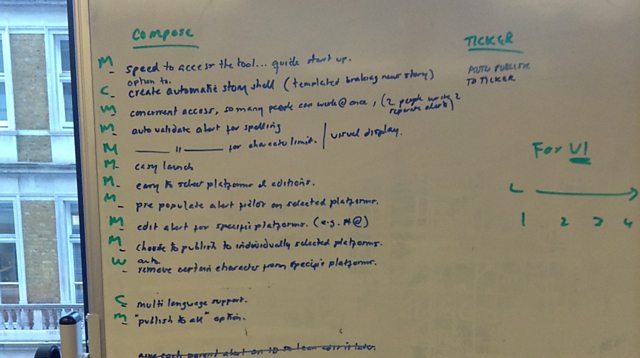 COMPOSE
M speed to access the tool... quick start up.
option to.
C create automatic story shell (templated breaking news story)
W concurrent access, so many people can work @ once, (2 people write 2
separate alerts)
M auto validate alert for spelling
M —— 11 —— for character limit. / visual display.
M easy launch
M easy to select platforms & editions.
M pre populate alert fields on selected platforms.
M edit alert for specific platforms. (e.g. #@)
M choose to publish to individually selected platforms.
auto.
W remove certain character from specific platforms.
C multi language support.
M "publish to all" option.
give each parent alert an ID so can edit it later.
TICKER
AUTO PUBLISH
TO TICKER
For UI
L
1 2 3 4